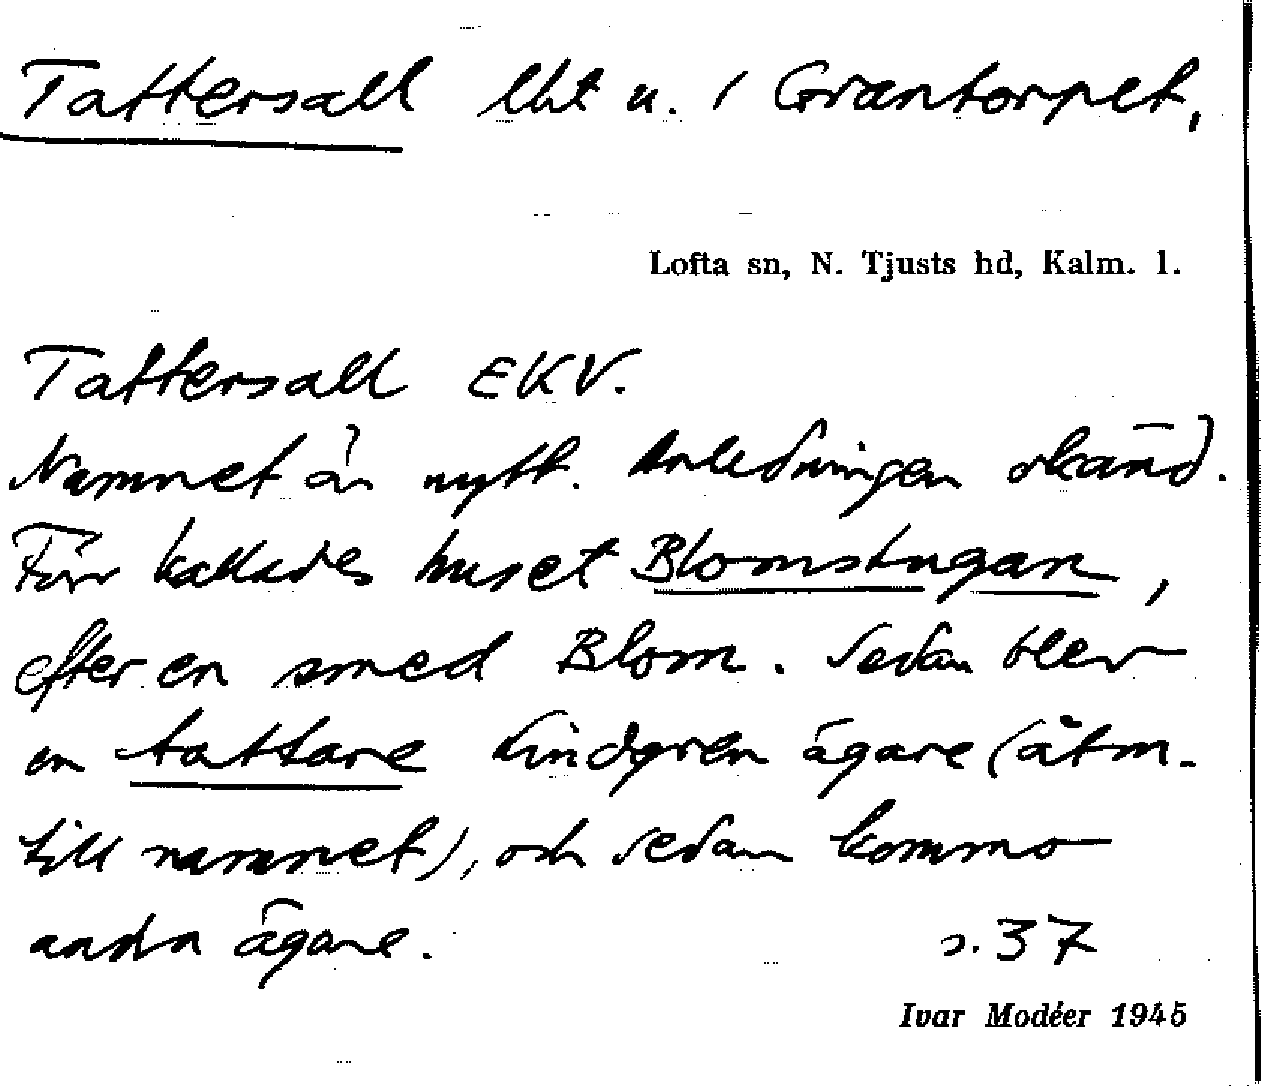 Tattersall lht u. / Grantorpet,
Lofta sn, N. Tjusts hd, Kalm. l.
Tattersall EKV.
Namnet är nytt. Anledningen okänd.
Förr kallades huset Blomstugan,
efter en smed Blom. Sedan blev
en tattare Lindgren ägare (åtm.
till namnet), och sedan kommo
andra ägare. s. 37
Ivar Modéer 1945